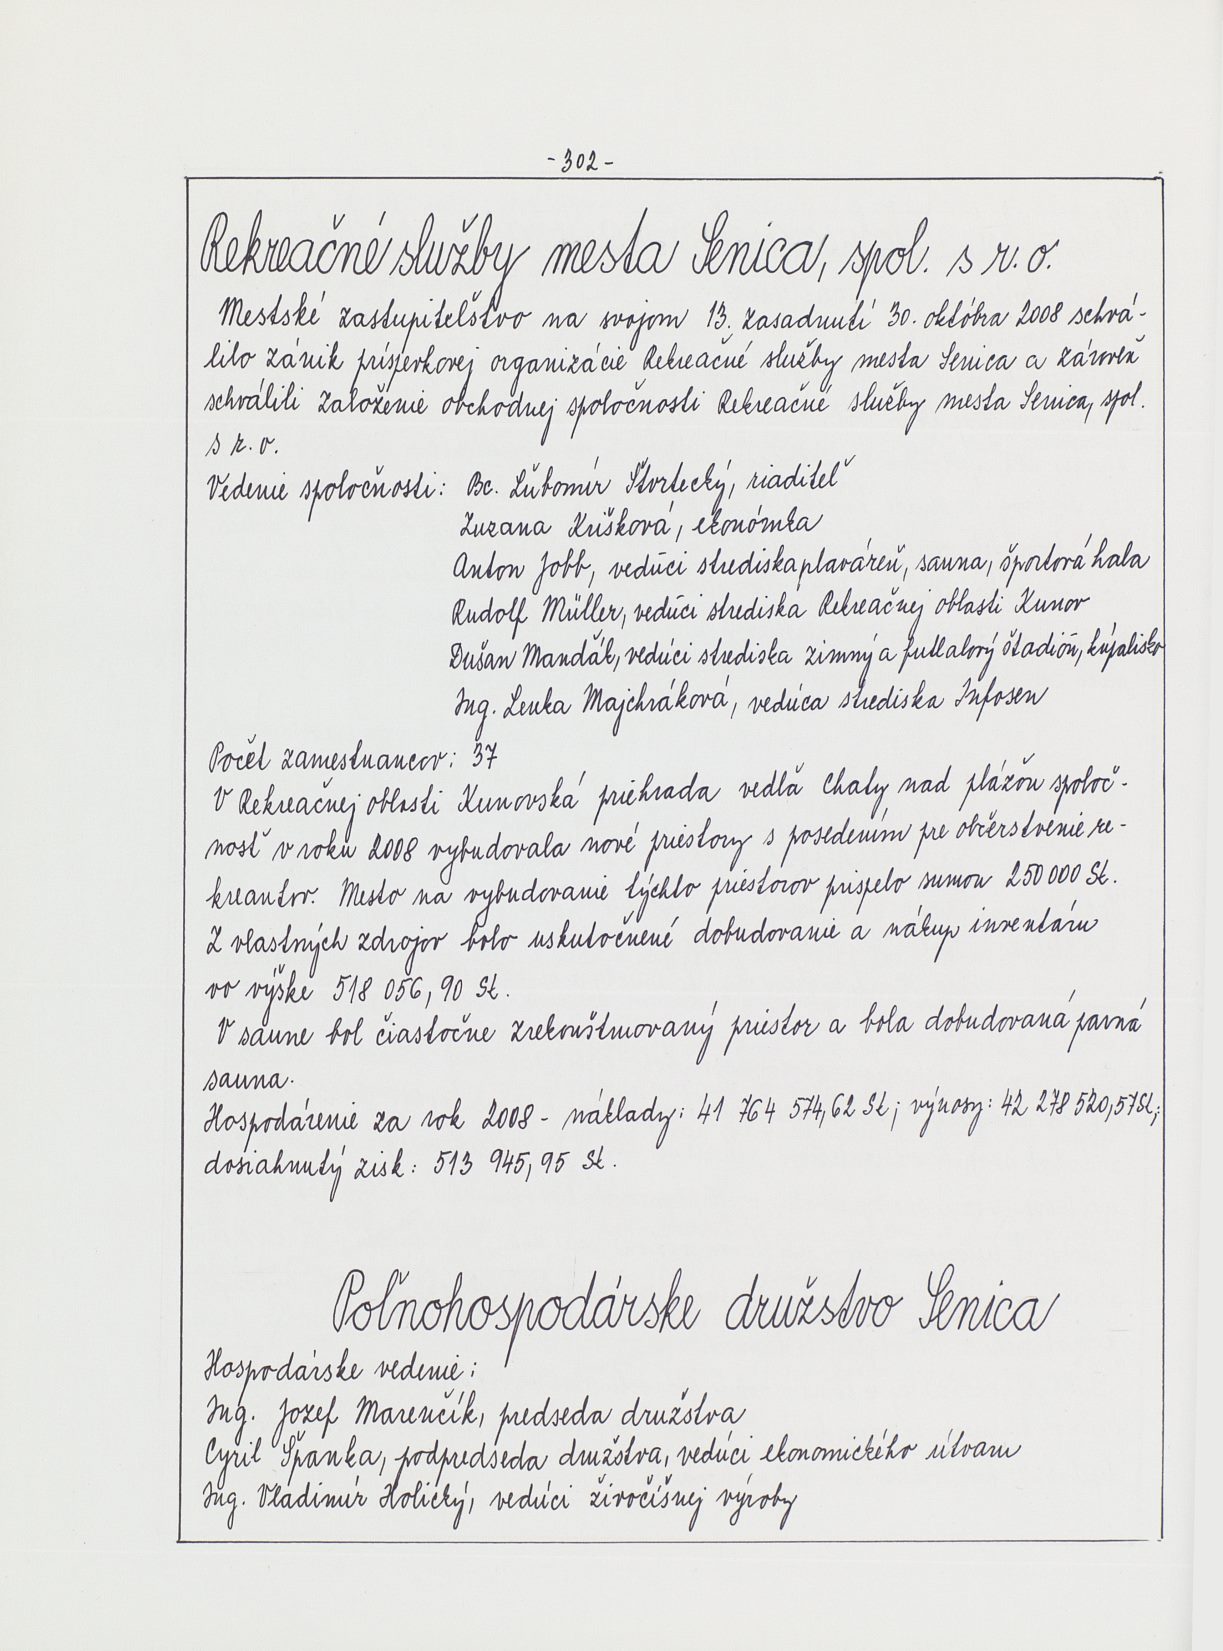 -302-
Rekreačné služby mesta Senica, spol. s r. o.
Mestské zastupiteľstvo na svojom 13. zasadnutí 30. októbra 2008 schvá-
lilo zánik príspevkovej organizácie Rekreačné služby mesta Senica a zároveň
schválili založenie obchodnej spoločnosti Rekreačné služby mesta Senica, spol.
s r. o.
Vedenie spoločnosti: Bc. Ľubomír Štvrtecký, riaditeľ
Zuzana Krišková, ekonómka
Anton Jobb, vedúci strediska plaváreň, sauna, športová hala
Rudolf Müller, vedúci strediska Rekreačnej oblasti Kunov
Dušan Mandák, vedúci strediska zimný a futbalový štadión, kúpalisko
Ing. Lenka Majchráková, vedúca strediska Infosen
Počet zamestnancov: 37
V Rekreačnej oblasti Kunovská priehrada vedľa Chaty nad plážou spoloč-
nosť v roku 2008 vybudovala nové priestory s posedením pre občerstvenie re-
kreantov. Mesto na vybudovanie týchto priestorov prispelo sumou 250 000 Sk.
Z vlastných zdrojov bolo uskutočnené dobudovanie a nákup inventáru
vo výške 518 056,90 Sk.
V saune bol čiastočne zrekonštruovaný priestor a bola dobudovaná parná
sauna.
Hospodárenie za rok 2008 - náklady: 41 764 574,62 Sk; výnosy: 42 278 520,57 Sk;
dosiahnutý zisk: 513 945,95 Sk.
Poľnohospodárske družstvo Senica
Hospodárske vedenie:
Ing. Jozef Marenčík, predseda družstva
Cyril Španka, podpredseda družstva, vedúci ekonomického útvaru
Ing. Vladimír Holický, vedúci živočíšnej výroby